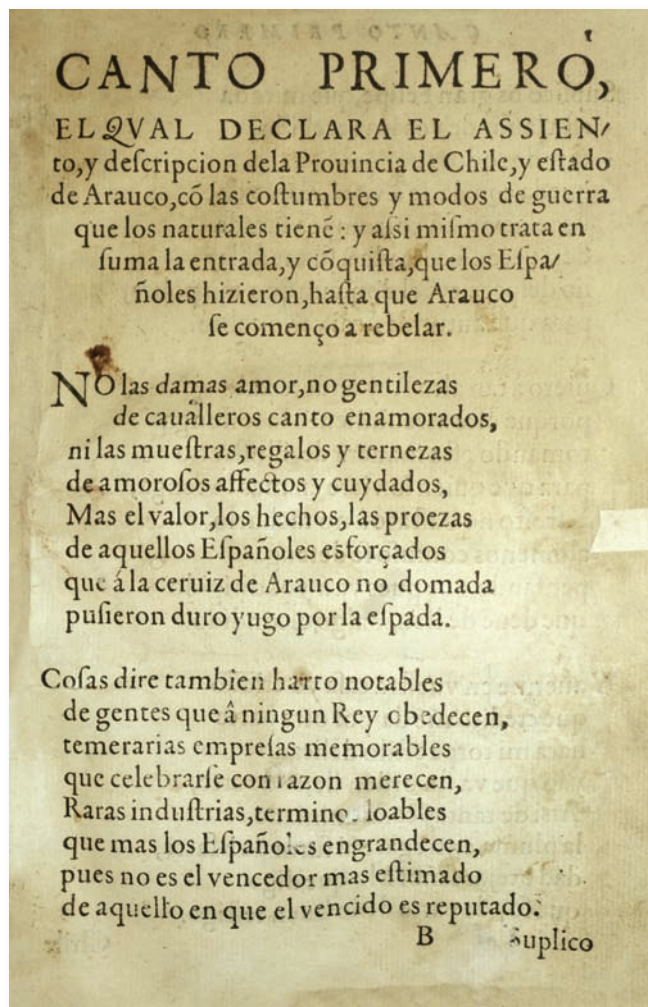 CANTO PRIMERO,
EL QVAL DECLARA EL ASSIEN-
to, y deſcripcion dela Prouincia de Chile, y eſtado
de Arauco, cõ las coſtumbres y modos de guerra
que los naturales tienẽ: y aſsi miſmo trata en
ſuma la entrada, y cõquiſta, que los Eſpa-
ñoles hizieron, haſta que Arauco
ſe començo a rebelar.
NO las damas amor, no gentilezas
de cauálleros canto enamorados,
ni las mueſtras, regalos y ternezas
de amoroſos affectos y cuydados,
Mas el valor, los hechos, las proezas
de aquellos Eſpañoles esforçados
que á la ceruiz de Arauco no domada
puſieron duro yugo por la eſpada.
Coſas dire tambien harto notables
de gentes que â ningun Rey obedecen,
temerarias empreſas memorables
que celebrarſe con razon merecen,
Raras induſtrias, termino. loables
que mas los Eſpañoles engrandecen,
pues no es el vencedor mas eſtimado
de aquello en que el vencido es reputado.
B Suplico